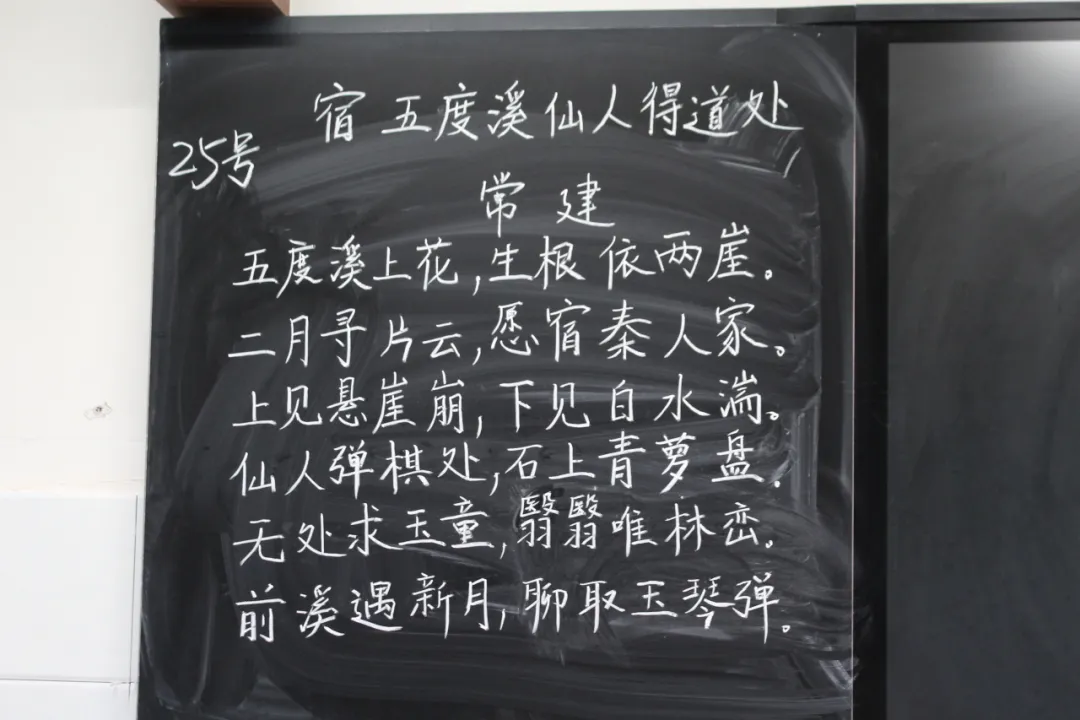 宿五度溪仙人得道处
25号
常建
五度溪上花,生根依两崖。
二月寻片云,愿宿秦人家。
上见悬崖崩,下见白水湍。
仙人弹棋处,石上青萝盘。
无处求玉童,翳翳唯林峦。
前溪遇新月,聊取玉琴弹。